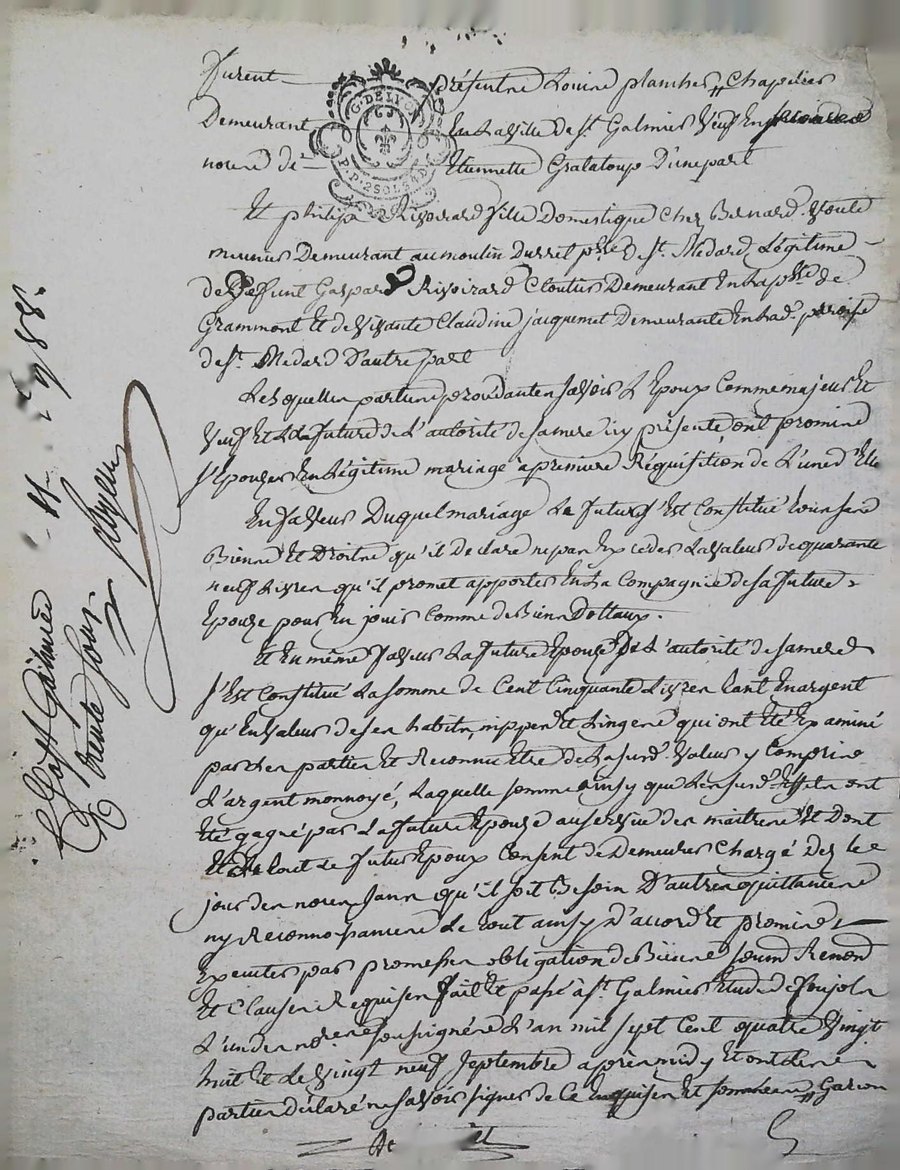 furent présents Louis planches,, Chapelier
Demeurant En La ville de st. Galmier Veuf En
noces de Etiennette Gralaloup D'une part
G. DE LYON
P. P. 2 SOLS
Et philipa Rivoirard fille Domestique Chez Bernard
meunier Demeurant au moulin Durret psse. De st. Medard Légitime
de Deffunt Gaspard Rivoirard Cloutier Demeurant En La psse. de
Grammont Et de Vivante Claudine jacquemet Demeurante En lad. paroisse
de st. Medard D'autre part
Lesquelles parties procedantes savoir L'Epoux Comme majeur Et
Veuf Et La future de L'autorité de sa mere icy présente ont promis
s'Epouser En Légitime mariage a premiere Réquisition de L'un d'Elle
En faveur Duquel mariage Le futur s'Est Constitué tous ses
Biens Et Droits qu'il Declare ne pas Exceder La valeur de quarante
neuf Livres qu'il promet apporter En La Compagnie de sa future
Epouze pour En jouir Comme de Biens Dottaux.
Et En même faveur La future Epouze De L'autorité de sa mere
s'Est Constitué La somme de Cent Cinquante Livres tant En argent
qu'En valeur de ses habits, nippes Et Linges qui ont Eté Examiné
par les parties Et Reconnu Etre de La susd. valeur y Compris
L'argent monnoyé, Laquelle somme ainsy que Les susd. Effets ont
Eté gagné par La future Epouze au service des maitres Et Dont
Et du tout Le futur Epoux Consent de Demeurer Chargé Dez Le
jour des noces sans qu'il soit Besoin D'autres quittances
ny Reconnoissances Le tout ainsy D'accord Et promis
Executer par promesses obligation de Biens soum Renond
Et Clauses Requises fait Et passé à st. Galmier Etude de foujols
L'un des nores. soussignés L'an mil sept Cent quatre Vingt
huit Et Le Vingt neuf Septembre après midy Et ont Les
parties déclaré ne savoir signer de Ce Enquises Et Garcon
29 7bre 1788.